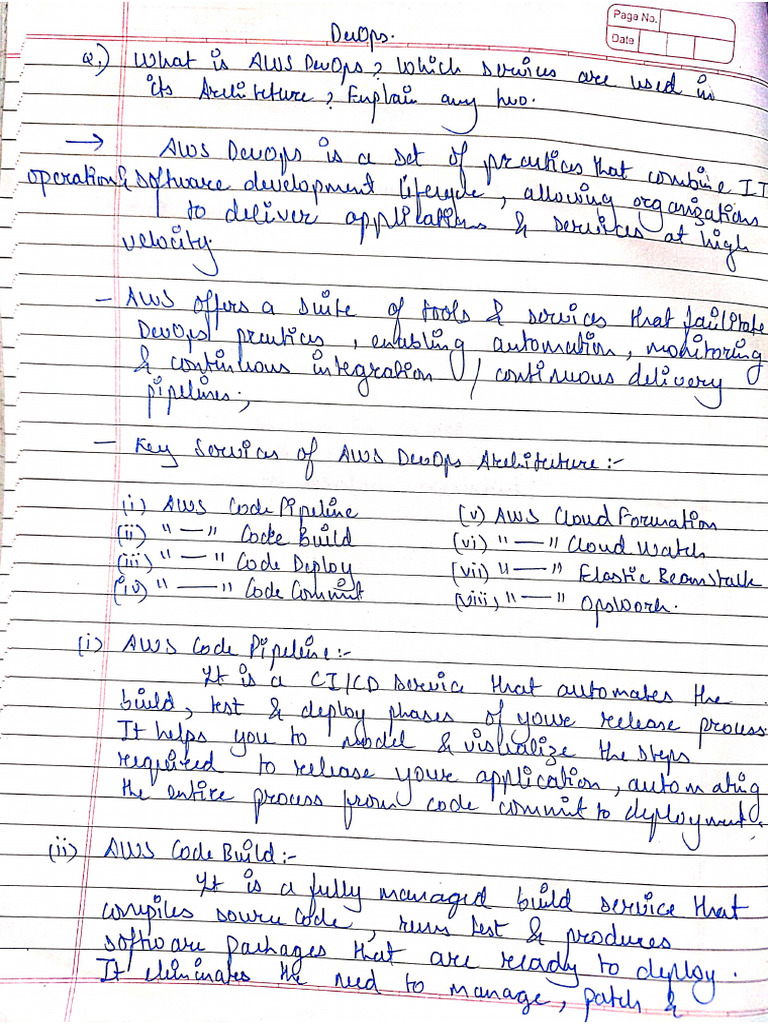 DevOps.
Page No.
Date
Q.) What is AWS DevOps? Which services are used in
its Architeture? Explain any two.
→ AWS DevOps is a set of practices that combine IT
operation & software development lifecycle, allowing organizations
to deliver applications & services at high
velocity.
- AWS offers a suite of tools & services that failitate
DevOps practices, enabling automation, monitoring
& continuous integration / continuous delivery
pipelines;
- Key Services of AWS DevOps Architeture:-
(i) AWS Code Pipeline (v) AWS Cloud Formation
(ii) "—" Code Build (vi) "—" Cloud Watch
(iii) "—" Code Deploy (vii) "—" Elastic Beamstalk
(iv) "—" Code Commit (viii) "—" OpsWork.
(i) AWS Code Pipeline:-
It is a CI/CD service that automates the
build, test & deploy phases of your release process.
It helps you to model & visualize the steps
required to release your application, automating
the entire process from code commit to deployment.
(ii) AWS Code Build:-
It is a fully managed build service that
compiles source code, runs test & produces
software packages that are ready to deploy.
It eliminates the need to manage, patch &